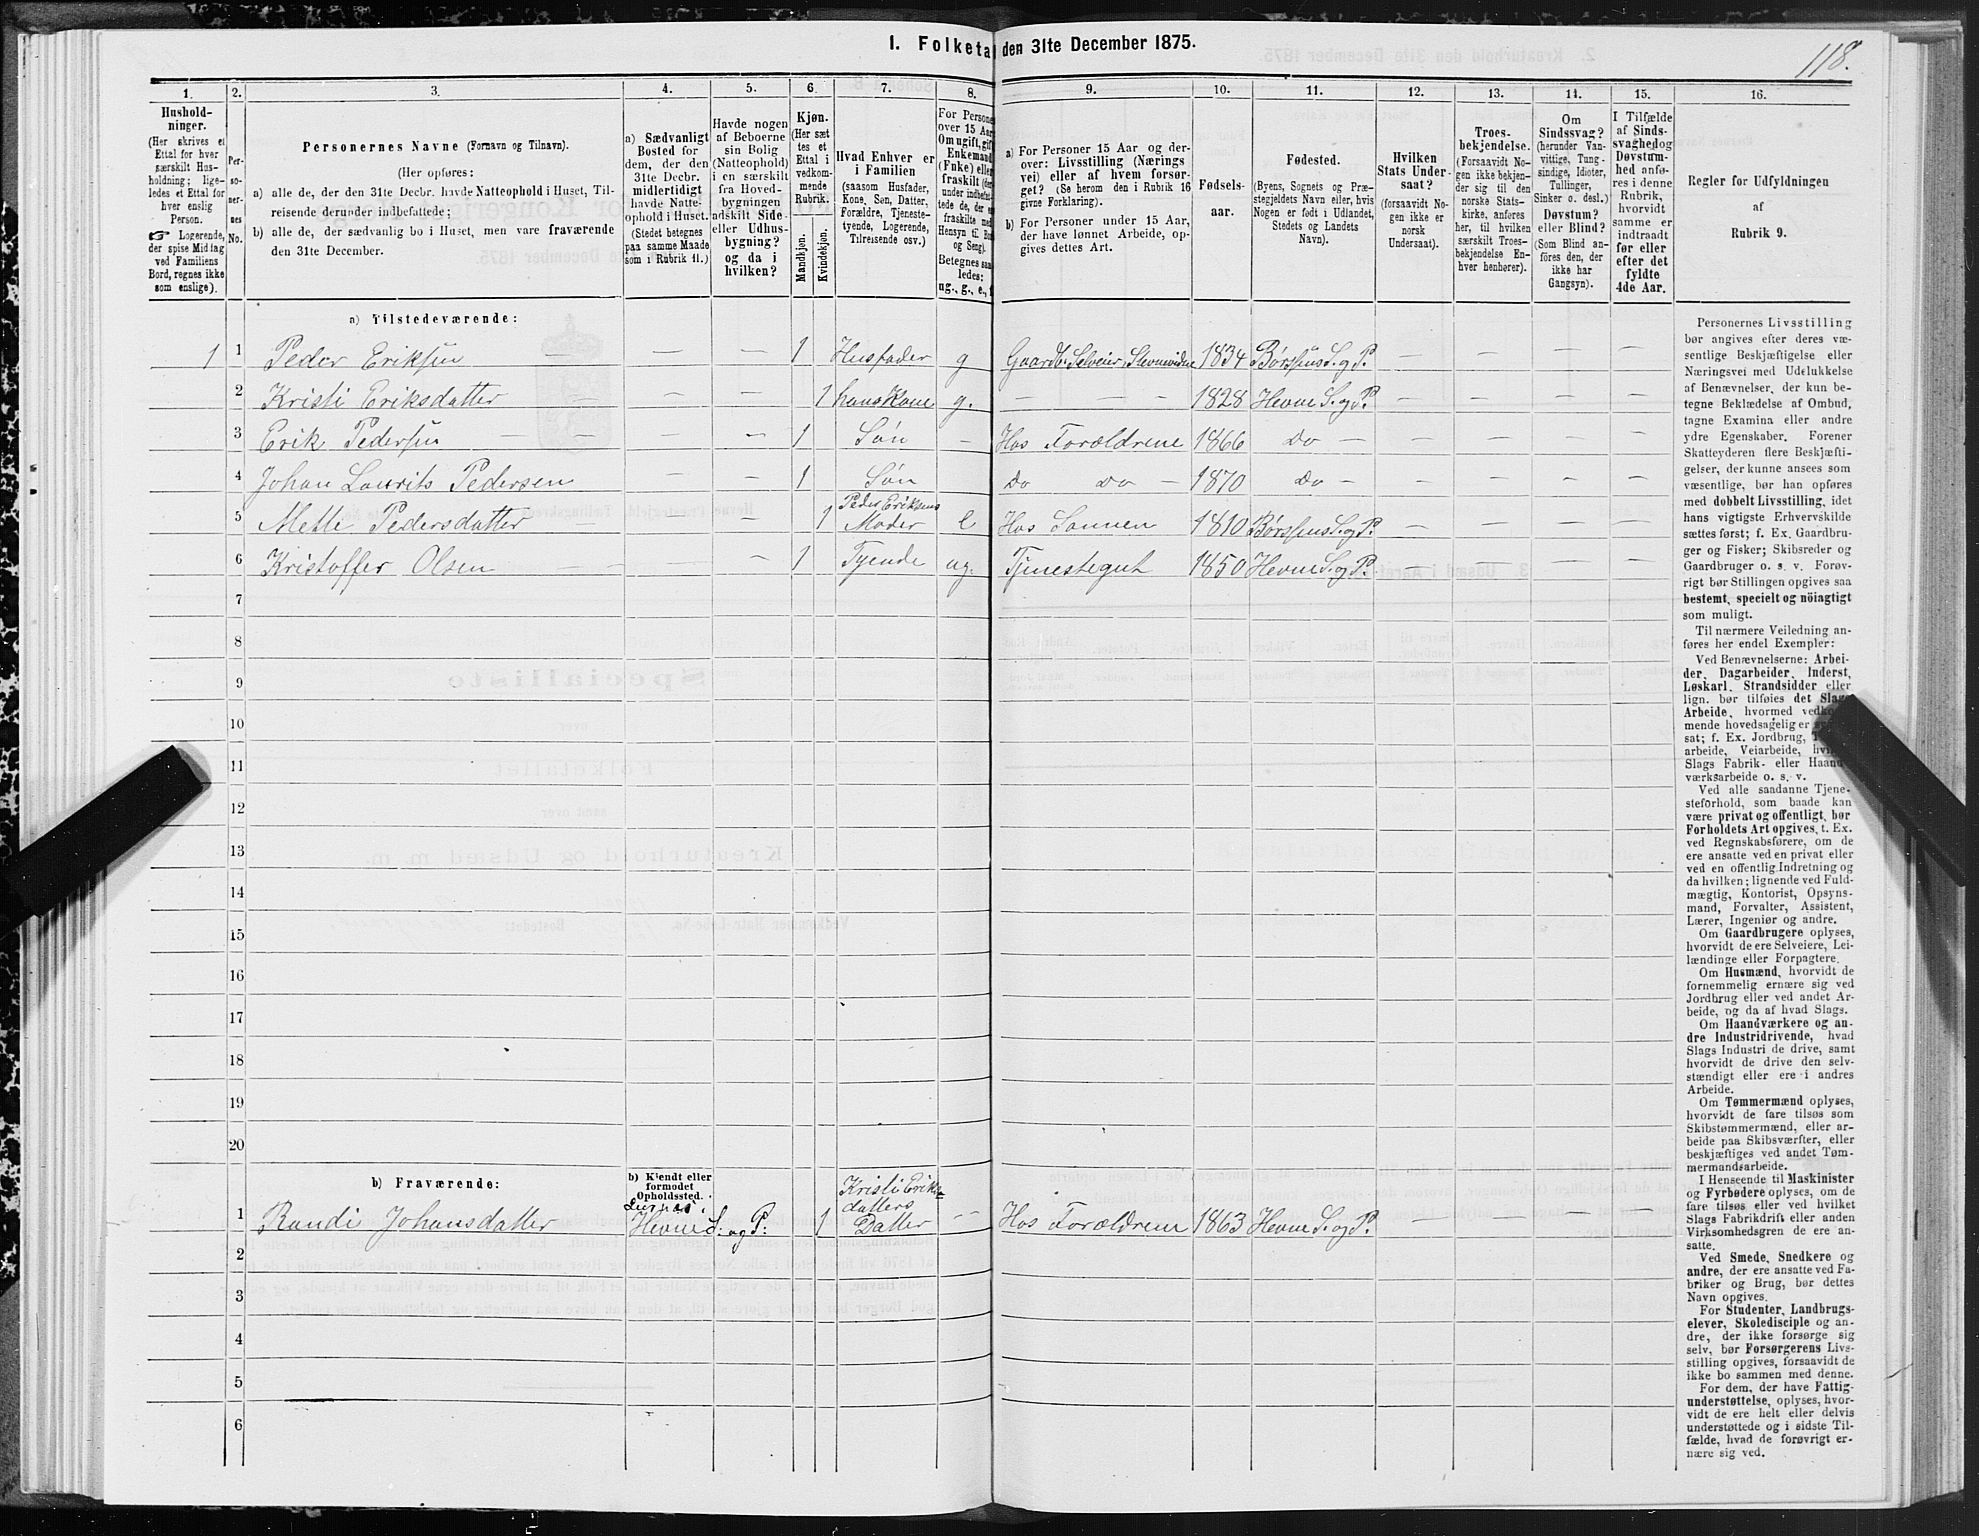 118.
1. Folketal den 31te December 1875.
1. 2. 3. 4. 5. 6. 7. 8. 9. 10. 11. 12. 13. 14. 15. 16.
Hushold-
ninger.
(Her skrives et
Ettal for hver
særskilt Hus-
holdning; lige-
ledes et Ettal for
hver enslig
Person.
☞ Logerende,
der spise Middag
ved Familiens
Bord, regnes ikke
som enslige).
Per-
so-
ner-
nes
No.
Personernes Navne (Fornavn og Tilnavn).
(Her opføres:
a) alle de, der den 31te Decbr. havde Natteophold i Huset, Til-
reisende derunder indbefattede;
b) alle de, der sædvanlig bo i Huset, men vare fraværende
den 31te December.
a) Sædvanligt
Bosted for
dem, der den
31te Decbr.
midlertidigt
havde Natte-
ophold i Huset.
(Stedet betegnes
paa samme Maade
som i Rubrik 11.)
Havde nogen
af Beboerne
sin Bolig
(Natteophold)
i en særskilt
fra Hoved-
bygningen
adskilt Side-
eller Udhus-
bygning?
og da i
hvilken?
Kjøn.
(Her sæt-
tes et
Ettal i
vedkom-
mende
Rubrik.
Mandkjøn.
Kvindekjøn.
Hvad Enhver er
i Familien
(saasom Husfader,
Kone, Søn, Datter,
Forældre, Tjeneste-
tyende, Logerende,
Tilreisende osv.)
For Persone
over 15 Aar
Om ugift, gift
Enkemand
(Enke) eller
fraskilt (der
under indbefat-
tede de, der e
fraskilte med
Hensyn til Bo
og Seng).
Betegnes saa
ledes:
ug., g., e., f
a) For Personer 15 Aar og der-
over: Livsstilling (Nærings
vei) eller af hvem forsør-
get? (Se herom den i Rubrik 16
givne Forklaring).
b) For Personer under 15 Aar,
der have lønnet Arbeide, op-
gives dettes Art.
Fødsels-
aar.
Fødested.
(Byens, Sognets og Præ-
stegjeldets Navn eller, hvis
Nogen er født i Udlandet,
Stedets og Landets
Navn).
Hvilken
Stats Under-
saat?
(forsaavidt No-
gen ikke er
norsk
Undersaat).
Troes-
bekjendelse.
(Forsaavidt No-
gen ikke bekjen-
der sig til den
norske Stats-
kirke, anføres
her, til hvilken
særskilt Troes-
bekjendelse En-
hver henhører).
Om
Sindssvag?
(herunder Van-
vittige, Tung-
sindige, Idioter,
Tullinger,
Sinker o. desl.)
Døvstum?
eller Blind?
(Som Blind an-
føres den, der
ikke har
Gangsyn).
I Tilfælde
af Sinds-
svaghed og
Døvstum-
hed anfø-
res i denne
Rubrik,
hvorvidt
samme er
indtraadt
før eller
efter det
fyldte
4de Aar.
Regler for Udfyldningen
af
Rubrik 9.
a) Tilstedeværende:
1 1 Peder Eriksen — — — 1 Husfader g Gaardb. Selveier 1834 Børsens S. og P. — — — —
2 Kristi Eriksdatter — — — 1 hans Kone g. — — — 1828 Hevne S. og P. — — — —
3 Erik Pedersen — — — — 1 Søn — Hos Forældrene 1866 Do — — — — —
4 Johan Laurits Pedersen — — 1 Søn Do Do — 1870 Do — — — — —
5 Mette Pedersdatter — — — 1 Peder Eriksens Moder e Hos Sønnen 1810 Børsens S. og P. — — — —
6 Kristoffer Olsen — — — — 1 Tyende ug. Tjenestegut 1850 Hevne S. og P. — — — —
7
8
9
10
11
12
13
14
15
16
17
18
19
20
b) Fraværende:
b) Kjendt eller
formodet
Opholdssted.
1 Randi Johansdatter Hevne S. og P. 1 Kristi Eriks-
datters
Datter — Hos Forældrene 1863 Hevne S. og P. — — — —
2
3
4
5
6
Personernes Livsstilling
bør angives efter deres væ-
sentlige Beskjæftigelse eller
Næringsvei med Udelukkelse
af Benævnelser, der kun be-
tegne Beklædelse af Ombud,
tagne Examina eller andre
ydre Egenskaber. Forener
Skatteyderen flere Beskjæfti-
gelser, der kunne ansees som
væsentlige, bør han opføres
med dobbelt Livsstilling, idet
hans vigtigste Erhvervskilde
sættes først; f. Ex. Gaardbru-
ger og Fisker; Skibsreder og
Gaardbruger o. s. v. Forøv-
rigt bør Stillingen opgives saa
bestemt, specielt og nöiagtigt
som muligt.
Til nærmere Veiledning an-
føres her endel Exempler:
Ved Benævnelserne: Arbei-
der, Dagarbeider, Inderst,
Løskarl, Strandsidder eller
lign. bør tilføies det Slags
Arbeide, hvormed vedkom-
mende hovedsagelig er
sat; f. Ex. Jordbrug,
arbeide, Veiarbeide,
Slags Fabrik- eller Haand-
værksarbeide o. s. v.
Ved alle saadanne Tjene-
steforhold, som baade kan
være privat og offentligt, bør
Forholdets Art opgives, t. Ex.
ved Regnskabsførere, om de
ere ansatte ved en privat eller
ved en offentlig Indretning og
da hvilken; lignende ved Fuld-
mægtig, Kontorist, Opsyns-
mand, Forvalter, Assistent,
Lærer, Ingeniør og andre.
Om Gaardbrugere oplyses,
hvorvidt de ere Selveiere, Lei-
lændinge eller Forpagtere.
Om Husmænd, hvorvidt de
fornemmelig ernære sig ved
Jordbrug eller ved andet Ar-
beide, og da af hvad Slags.
Om Haandværkere og an-
dre Industridrivende, hvad
Slags Industri de drive, samt
hvorvidt de drive den selv-
stændigt eller ere i andres
Arbeide.
Om Tømmermænd oplyses,
hvorvidt de fare tilsøs som
Skibstømmermænd, eller ar-
beide paa Skibsværfter, eller
beskjæftiges ved andet Tøm-
mermandsarbeide.
I Henseende til Maskinister
og Fyrbødere oplyses, om de
fare tilsøs eller ved hvilket
Slags Fabrikdrift eller anden
Virksomhedsgren de ere an-
satte.
Ved Smede, Snedkere og
andre, der ere ansatte ved Fa-
briker og Brug, bør dettes
Navn opgives.
For Studenter, Landbrugs-
elever, Skoledisciple og an-
dre, der ikke forsørge sig
selv, bør Forsørgerens Livs-
stilling opgives, forsaavidt de
ikke bo sammen med denne.
For dem, der have Fattig-
understøttelse, oplyses, hvor-
vidt de ere helt eller delvis
understøttede og i sidste Til-
fælde, hvad de forøvrigt er-
nære sig ved.